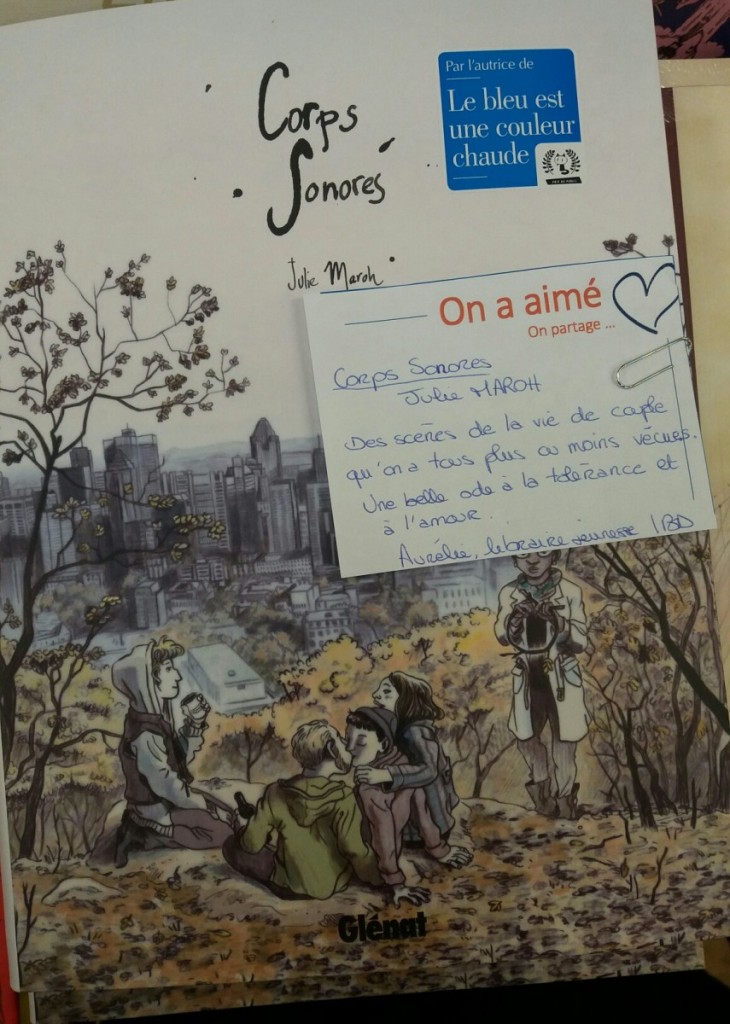 Corps
Sonores
Julie Maroh
Par l'autrice de
Le bleu est
une couleur
chaude
On a aimé
On partage ...
Corps Sonores
Julie MAROH
Des scènes de la vie de couple
qu'on a tous plus ou moins vécues.
Une belle ode à la tolérance et
à l'amour.
Aurélie, libraire jeunesse / BD
Glénat